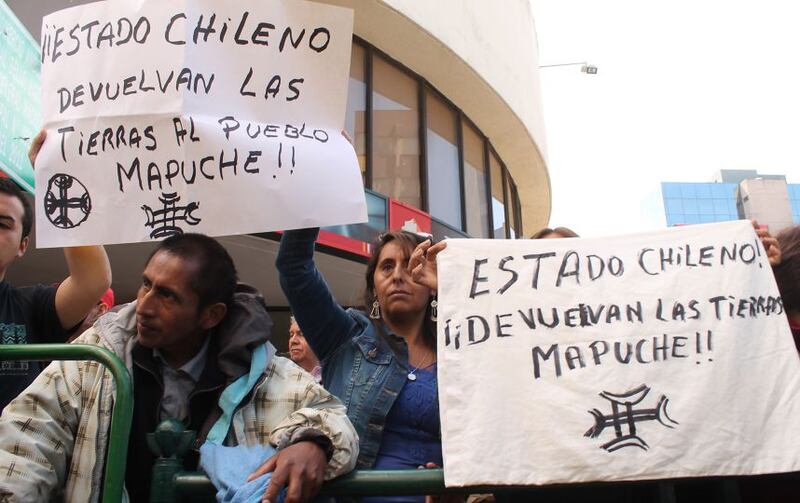 ¡¡ESTADO CHILENO
DEVUELVAN LAS
TIERRAS AL PUEBLO
MAPUCHE!!
ESTADO CHILENO!
¡¡DEVUELVAN LAS TIERRAS
MAPUCHE!!